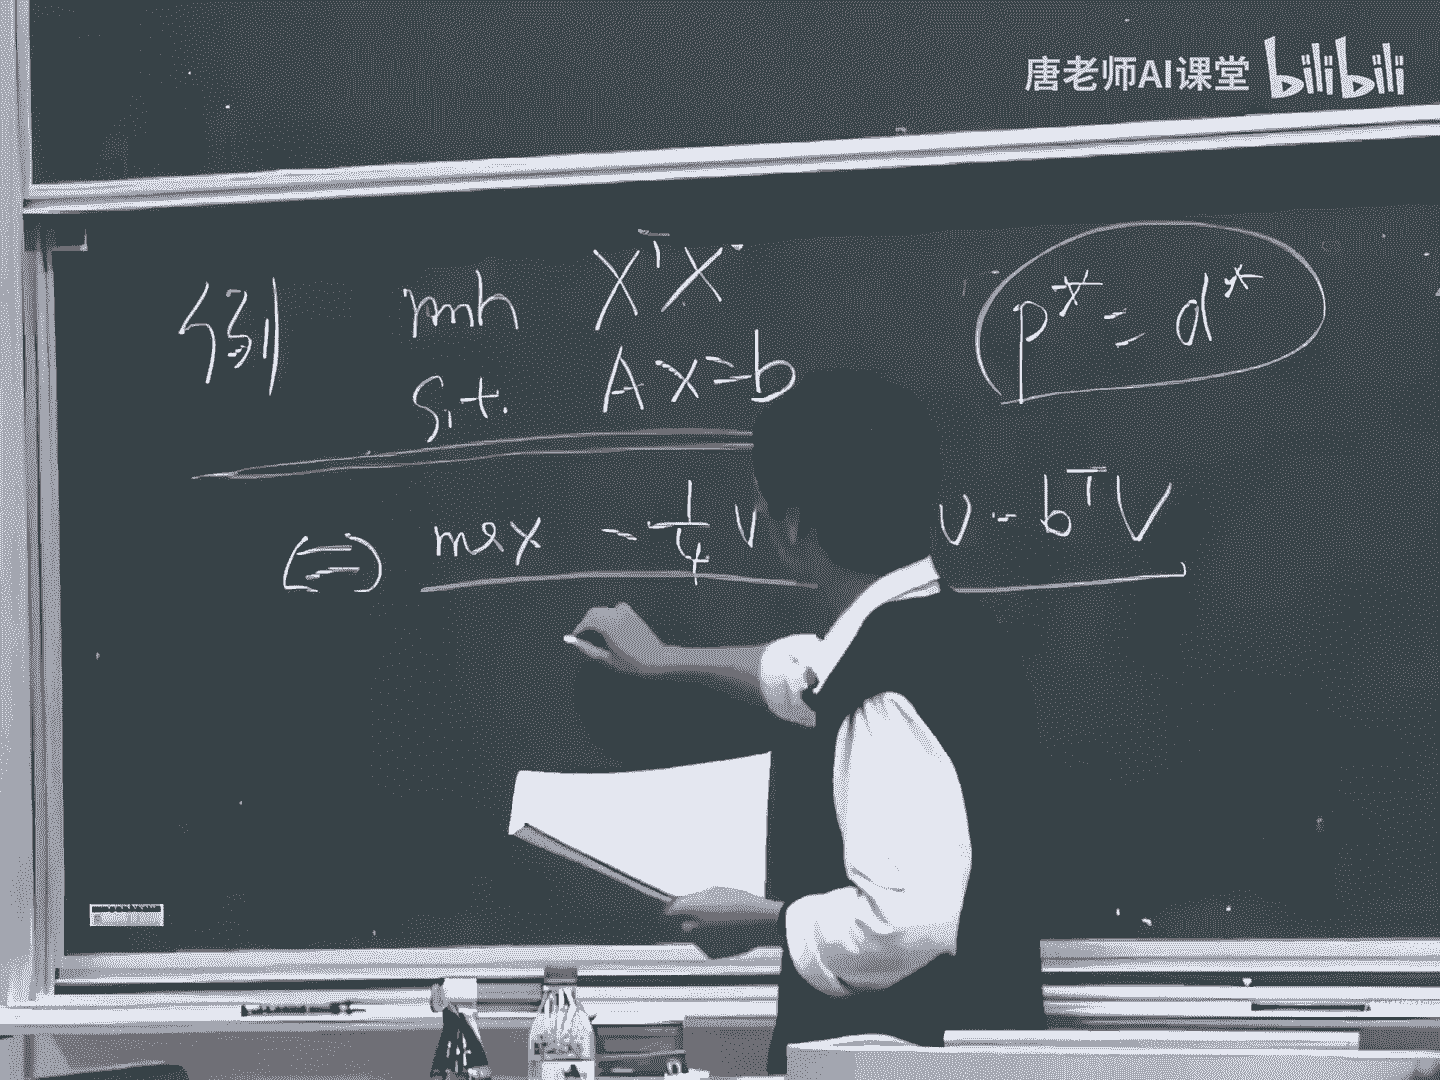 唐老师AI课堂 bilibili
例 min XᵀX
s.t. AX=b
p* = d*
(=) max -1/4 v v - bᵀv